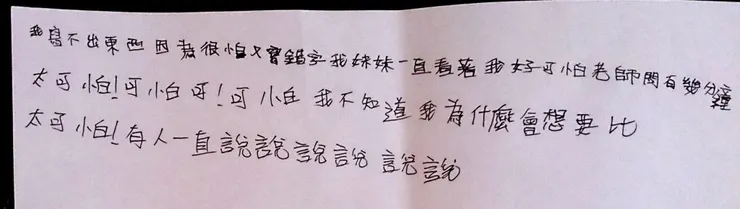 我寫不出東西因為很怕又寫錯字我妹妹一直看著我好可怕老師問有幾分鐘
太可怕!可小白可!可小白我不知道我為什麼會想要比
太可怕!有人一直說說說說說說